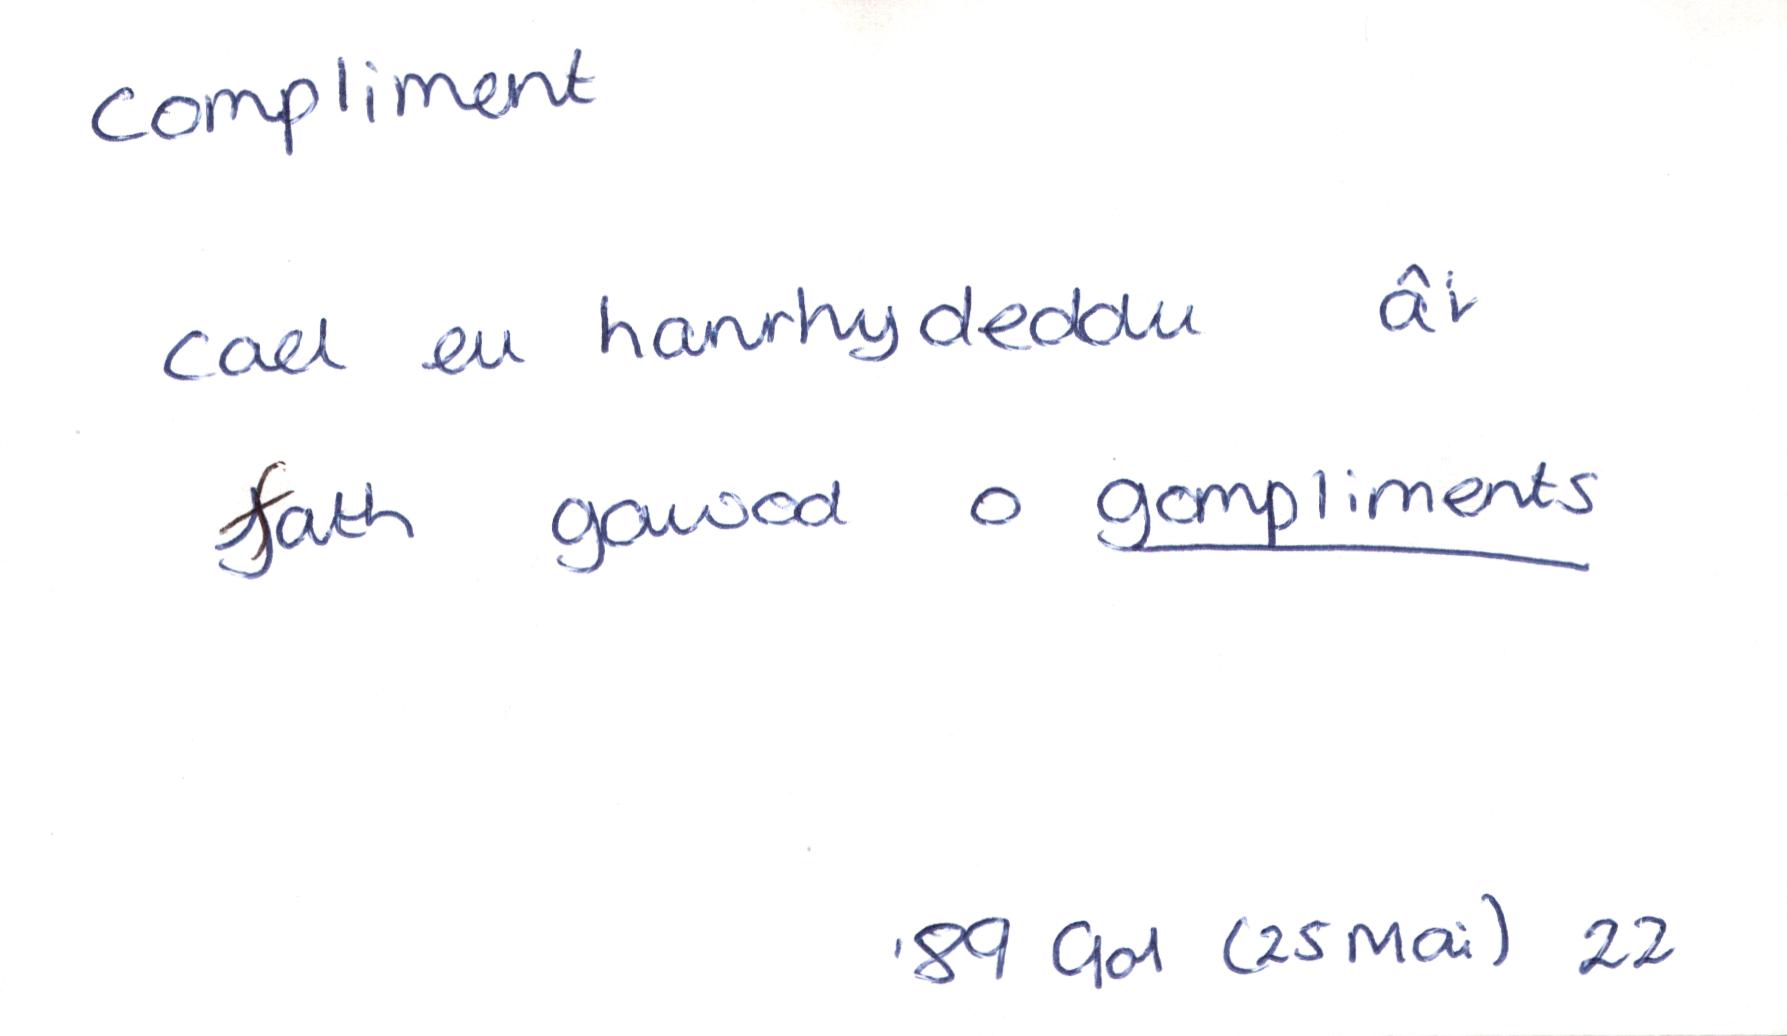 compliment
cael eu hanrhydeddu âr
fath gawod o gompliments
'89 Gol (25 Mai) 22